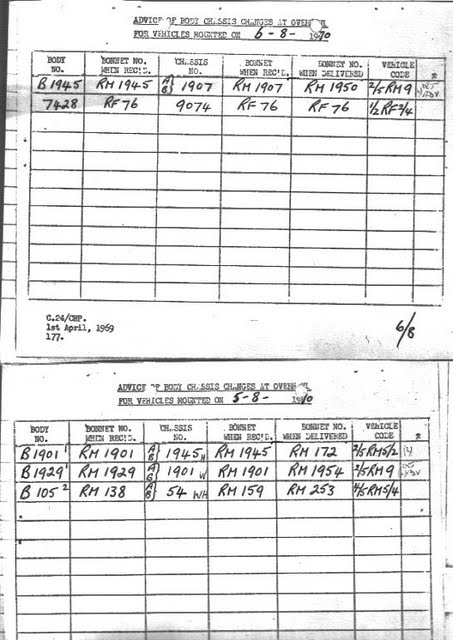 ADVICE OF BODY CHASSIS CHANGES AT OVERHAUL
FOR VEHICLES MOUNTED ON 6-8-1970
BODY NO. BONNET NO. WHEN REC'D. CHASSIS NO. BONNET WHEN REC'D. BONNET NO. WHEN DELIVERED VEHICLE CODE *
B1945 RM1945 A/B} 1907 RM1907 RM1950 2/5RM9
7428 RF76 9074 RF76 RF76 1/2RF2/4
C.24/CHP.
1st April, 1969
177.
6/8
ADVICE OF BODY CHASSIS CHANGES AT OVERHAUL
FOR VEHICLES MOUNTED ON 5-8-1970
BODY NO. BONNET NO. WHEN REC'D. CHASSIS NO. BONNET WHEN REC'D. BONNET NO. WHEN DELIVERED VEHICLE CODE *
B1901 1 RM1901 A/B} 1945 H RM1945 RM172 2/5RM5/2
B1929 1 RM1929 A/B} 1901 W RM1901 RM1954 2/5RM9
B105 2 RM138 A/B} 54 WH RM159 RM253 4/5RM5/4